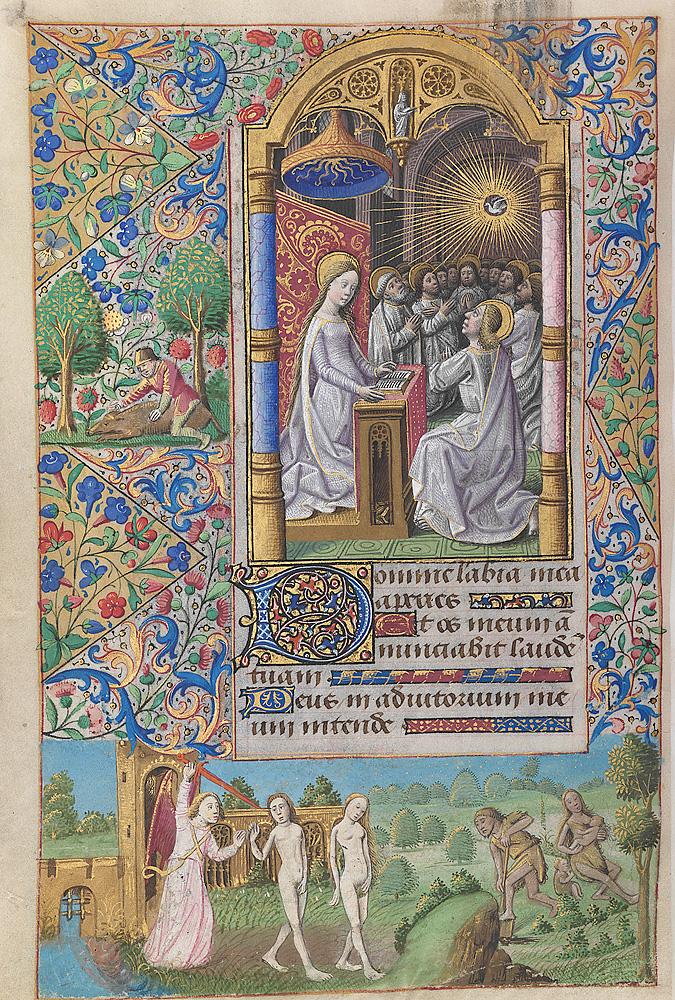 Domine labia mea
aperies
Et os meum a
nunciabit laudē
tuam
Deus in adiutorium me
um intende